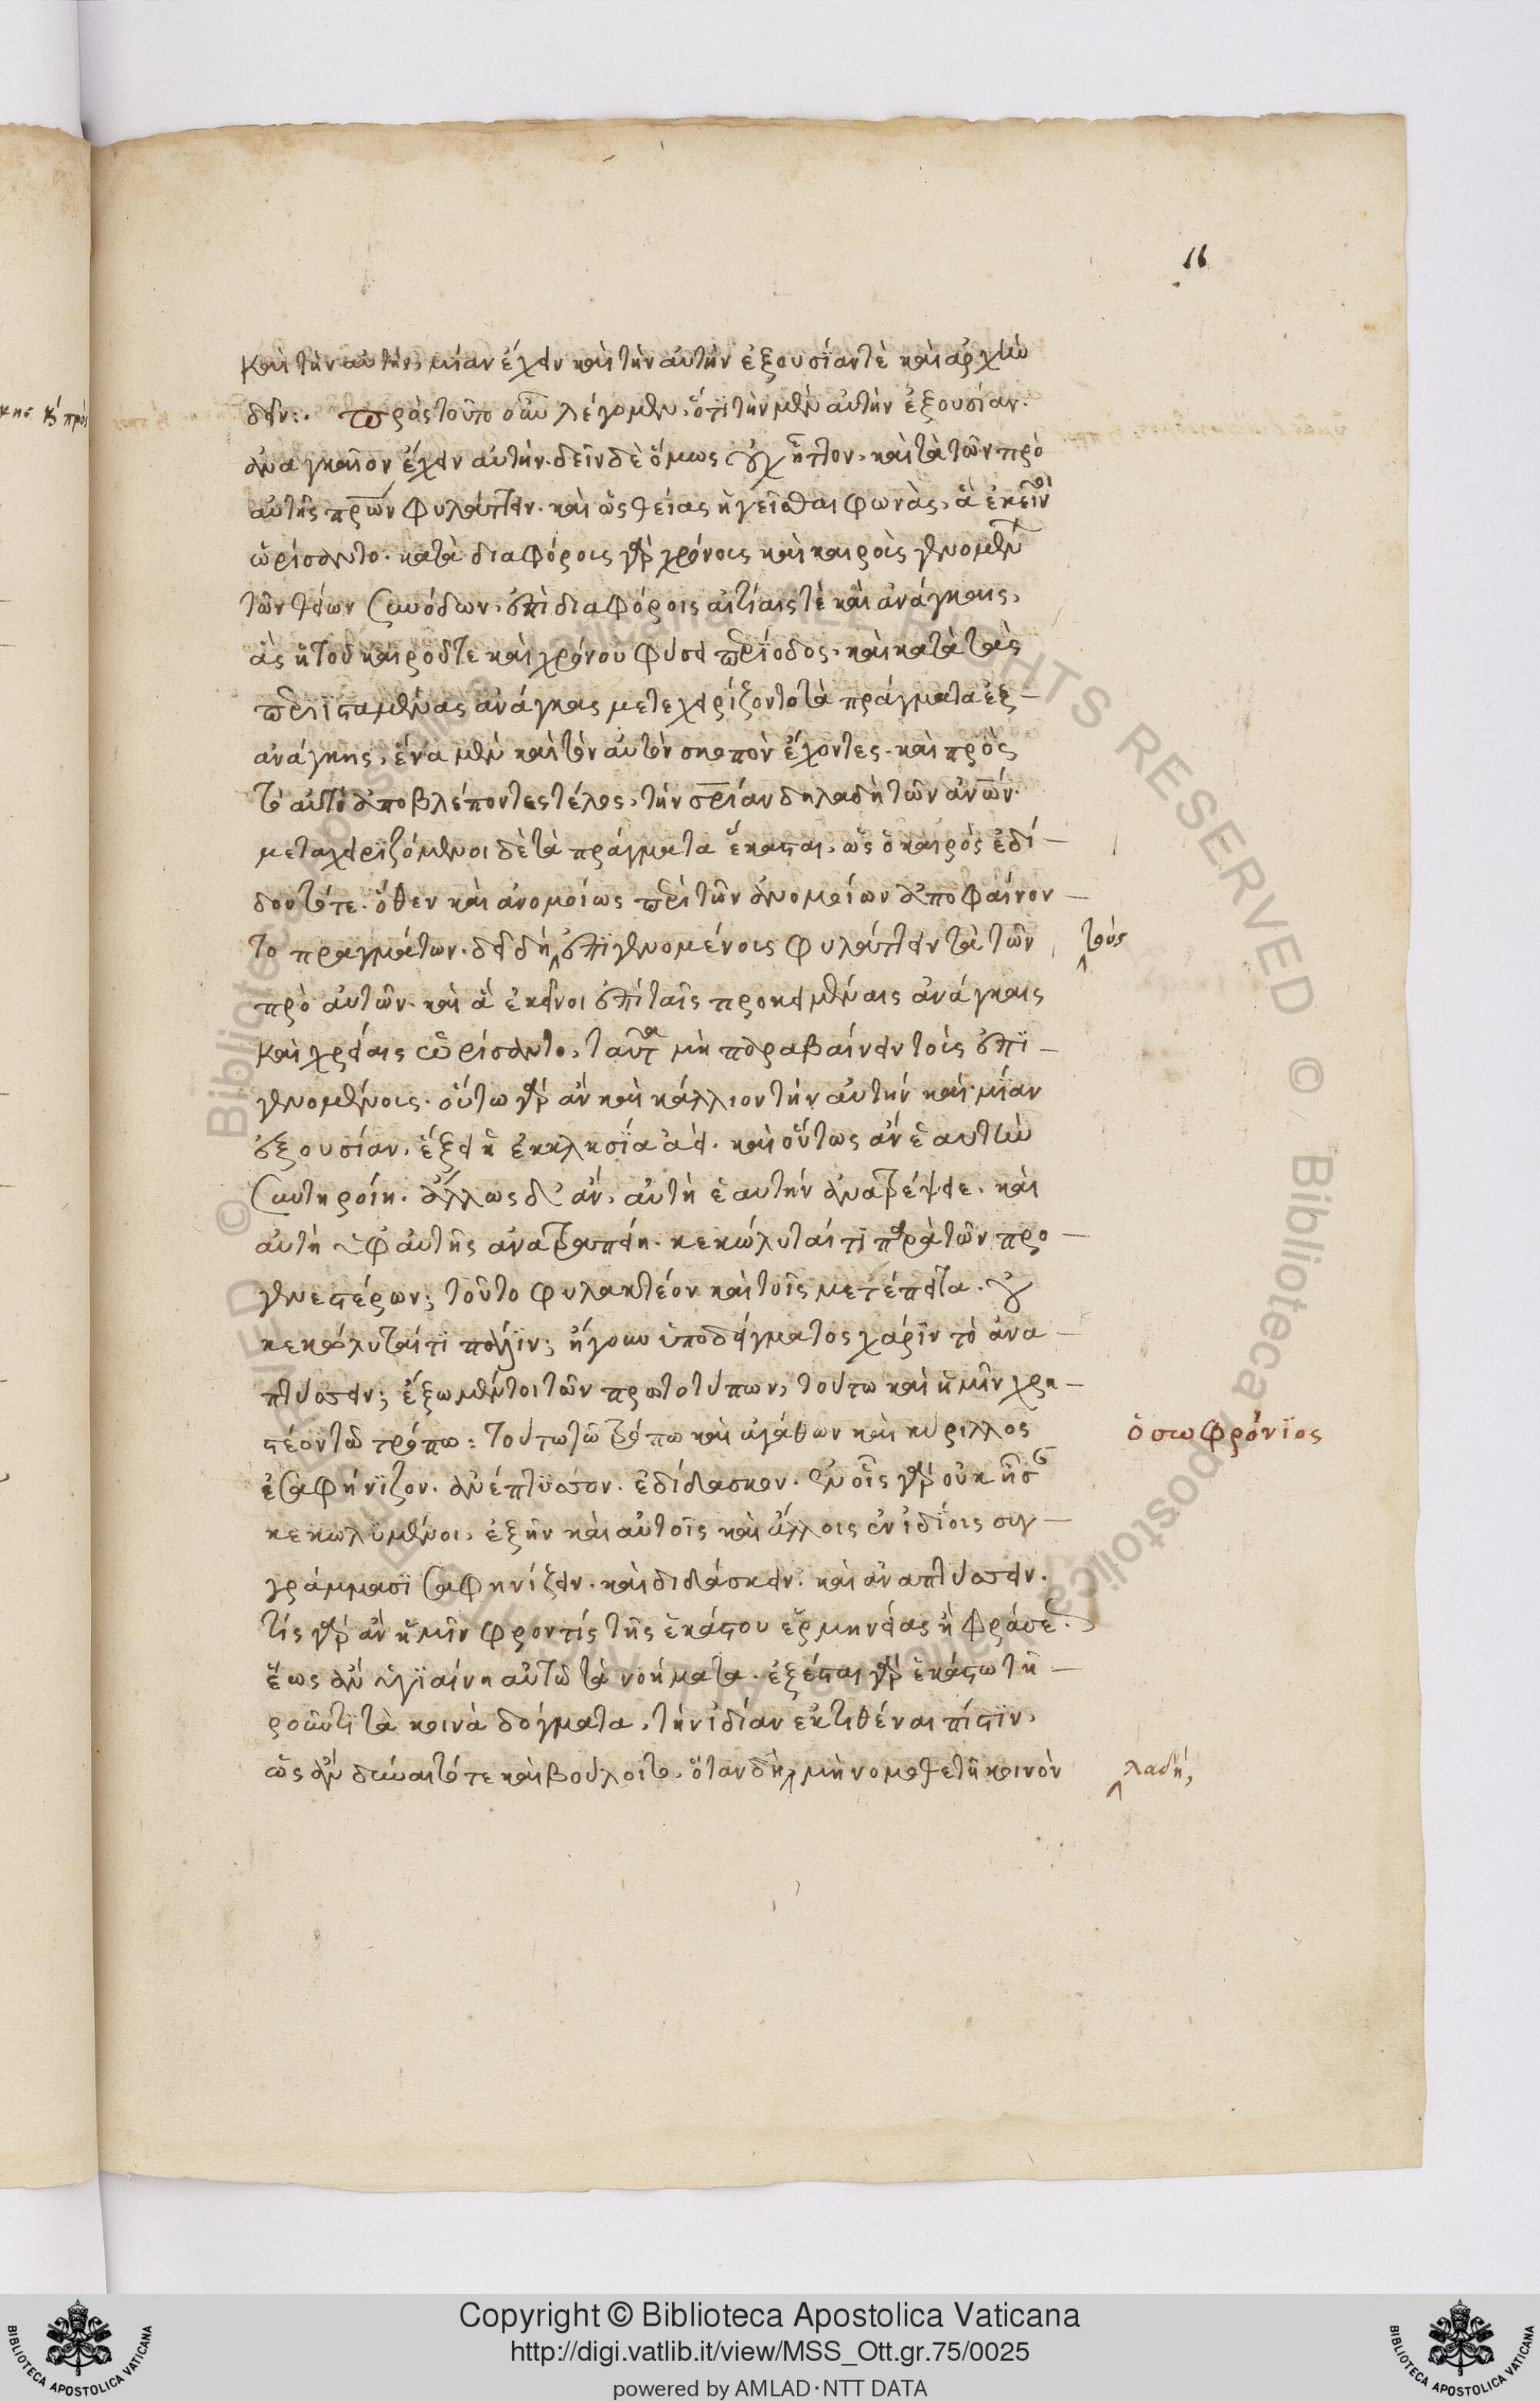 16
καὶ τὴν αὐτὴν, μίαν ἔχειν καὶ τὴν αὐτὴν ἐξουσίαν τὲ καὶ ἀρχὴν
δεῖν:. πρὸς τοῦτο οὖν λέγομεν, ὅτι τὴν μὲν αὐτὴν ἐξουσίαν.
ἀναγκαῖον ἔχειν αὐτὴν. δεῖν δὲ ὅμως οὐχ ἧττον, καὶ τὰ τῶν πρὸ
αὐτῆς πρων φυλάττειν. καὶ ὡς θείας ἡγεῖσθαι φωνὰς, ἃ ἐκεῖνοι
ὡρίσαντο. κατὰ διαφόροις γὰρ χρόνοις καὶ καιροῖς γενομένων
τῶν θείων συνόδων, ἐπὶ διαφόροις αἰτίαις τὲ καὶ ἀνάγκαις,
ἃς ἡ τοῦ καιροῦ τε καὶ χρόνου φύσει περίοδος, καὶ κατὰ τὰς
περιϊσταμένας ἀνάγκας μετεχειρίζοντο τὰ πράγματα ἐξ-
ἀνάγκης, ἕνα μὲν καὶ τὸν αὐτὸν σκοπὸν ἔχοντες. καὶ πρὸς
τὸ αὐτὸ ἀποβλέποντες τέλος, τὴν σριαν δηλαδὴ τῶν ανων.
μεταχειριζόμενοι δὲ τὰ πράγματα ἕκασται, ὡς ὁ καιρὸς ἐδί-
δου τότε. ὅθεν καὶ ἀνομοίως περὶ τῶν ἀνομοίων ἀποφαίνον-
το πραγμάτων. δεῖ δὴ ἐπιγενομένοις φυλάττειν τὰ τῶν
τοὺς
πρὸ αὐτῶν. καὶ ἃ ἐκεῖνοι ἐπὶ ταῖς προκειμέναις ἀνάγκαις
καὶ χρείαις ὡρίσαντο, ταῦτα μὴ παραβαίνειν τοῖς ἐπι-
γενομένοις. οὕτω γὰρ ἂν καὶ κάλλιον τὴν αὐτὴν καὶ μίαν
ἐξουσίαν, ἕξει ἡ ἐκκλησία ἀεί. καὶ οὕτως ἂν ἑαυτὴν
συντηροίη. ἄλλως δ' ἂν, αὐτὴ ἑαυτὴν ἀνατρέψειε. καὶ
αὐτὴ ὑφ' αὑτῆς ἀνατραπείη. κεκώλυταί τι παρὰ τῶν προ-
γενεστέρων; τοῦτο φυλακτέον καὶ τοῖς μετέπειτα. οὐ
κεκώλυταί τι πάλιν; ἤγουν ὑποδείγματος χάριν τὸ ἀνα-
πτύσσειν; ἔξω μέντοι τῶν πρωτοτύπων, τούτω καὶ ἡμῖν χρη-
στέον τῶ τρόπω: τούτω τῶ τρόπω καὶ ἀγάθων καὶ κύριλλος
ὁ σωφρόνϊος
ἐσαφήνιζον. ἀνέπτυσσον. ἐδίδασκον. ἐν οἷς γὰρ οὐκ ἦσαν
κεκωλϋμένοι, ἐξῆν καὶ αὐτοῖς καὶ ἄλλοις ἐν ἰδίοις συγ-
γράμμασϊ σαφηνίζειν. καὶ διδάσκειν. καὶ ἀναπτύσσειν.
τίς γὰρ ἂν ἡμῖν φροντὶς τῆς ἑκάστου ἑρμηνείας ἢ φράσεως
ἕως ἂν ὑγιαίνη αὐτῶ τὰ νοήματα. ἐξέσται γὰρ ἑκάστω τη-
ροῦντι τὰ κοινὰ δόγματα, τὴν ἰδίαν ἐκτιθέναι πίστιν,
ὡς ἂν δύναιτό τε καὶ βούλοιτο, ὅταν δὴ μὴ νομοθετῆ κοινὸν
λαδή,
Copyright © Biblioteca Apostolica Vaticana
http://digi.vatlib.it/view/MSS_Ott.gr.75/0025
powered by AMLAD·NTT DATA